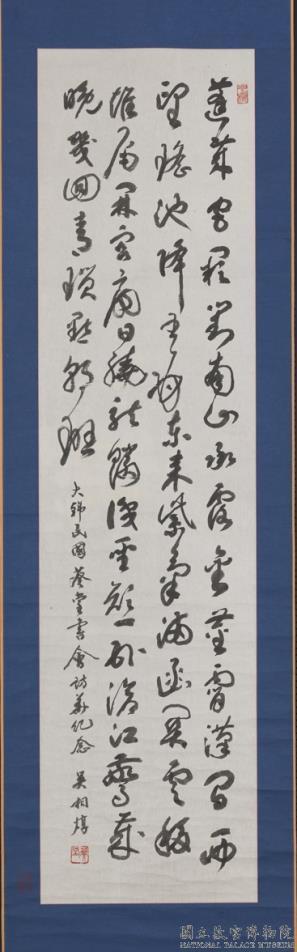 蓬萊宮闕對南山承露金莖霄漢間西
望瑤池降王母東來紫氣滿函關雲移
雉尾開宮扇日繞龍鱗識聖顏一臥滄江驚歲
晚幾回青瑣點朝班
大韓民國藝堂書會訪華紀念 吳相
國立故宮博物院
NATIONAL PALACE MUSEUM